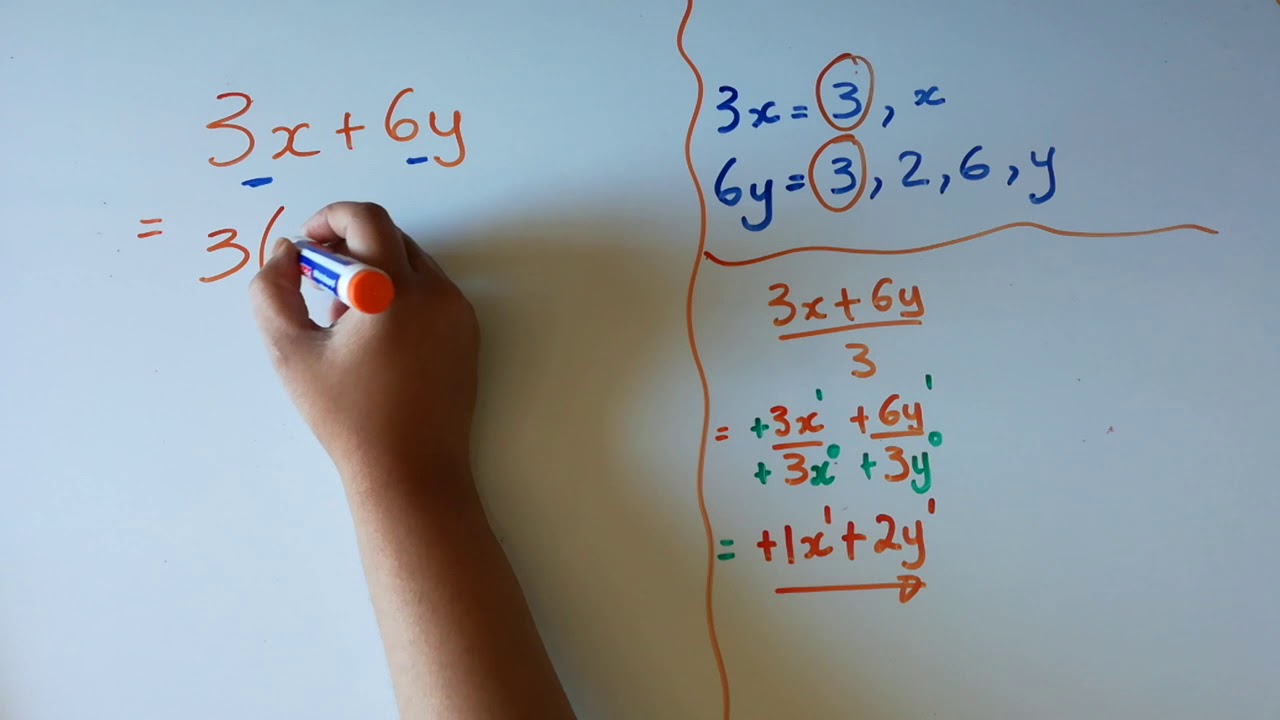 3x + 6y
= 3(
3x = 3, x
6y = 3, 2, 6, y
3x + 6y
3
= +3x¹ +6y¹
+3x⁰ +3y⁰
= +1x¹ + 2y¹